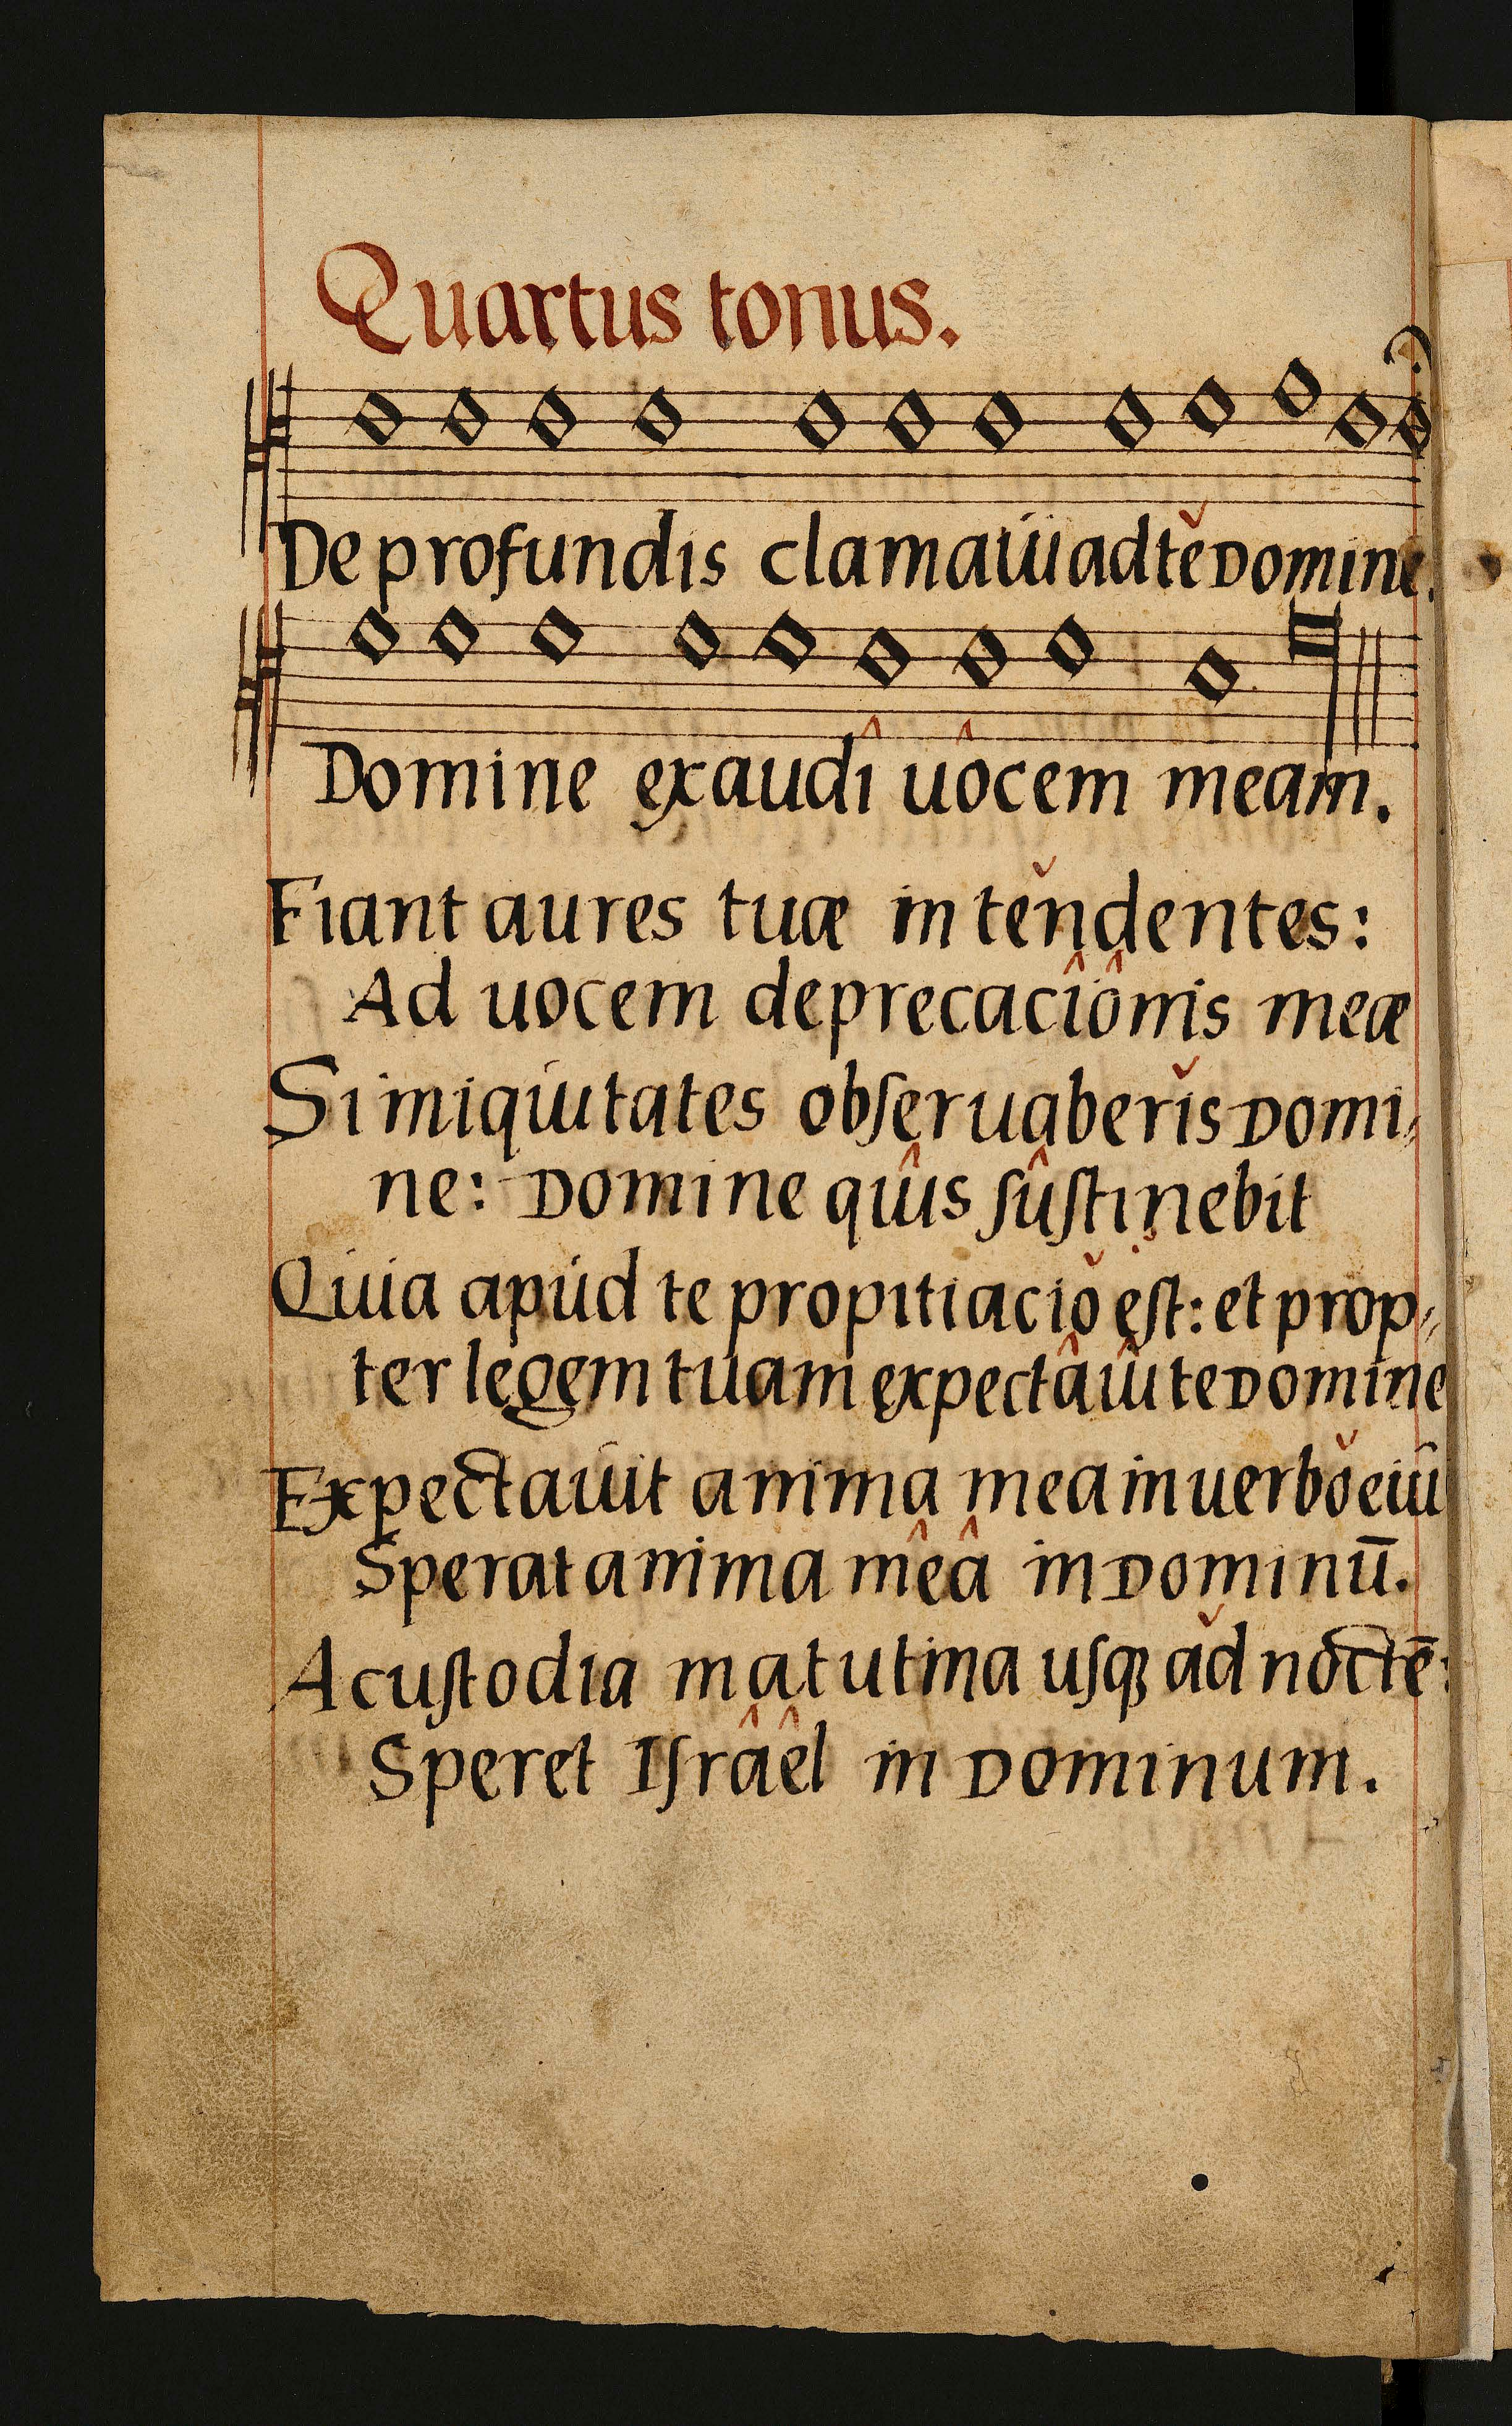 Quartus tonus.
De profundis clamaui ad tě Domine.
Domine exaudî uôcem meam.
Fiant aures tuæ intěndentes:
Ad uocem deprecacîônis meæ
Si iniquitates obſeruaberǐs Domi⸗
ne: Domine quîs ſûſtinebit
Quia apud te propitiaciǒ eſt: et prop⸗
ter legem tuam expectâuî te Domine
Expectauit anima mea in uerbǒ eiu
Sperat anima mêâ in Dominū.
A cuſtodia matutina uſqꝫ ǎd noctē:
Speret Iſrâêl in Dominum.